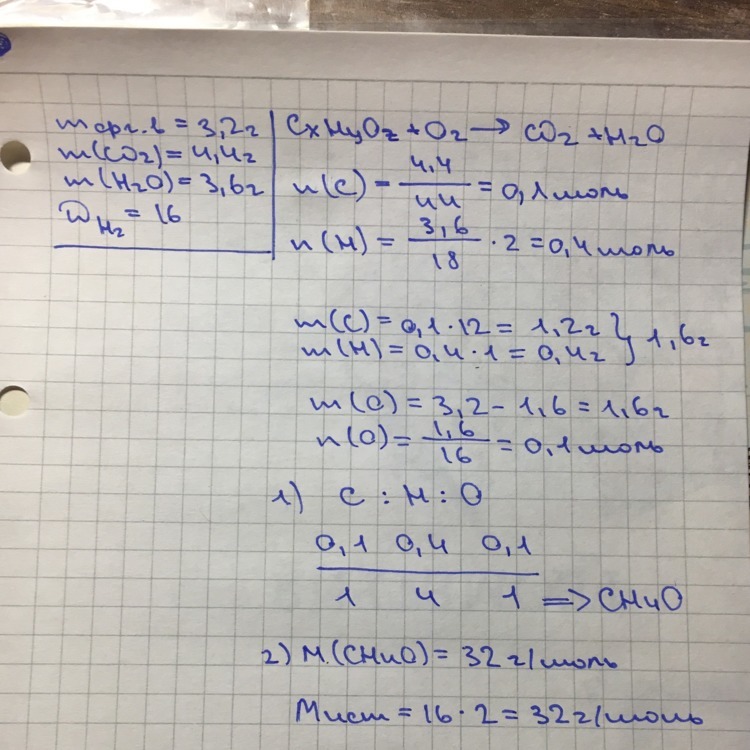 m орг.в = 3,2г
m(CO2) = 4,4г
m(H2O) = 3,6г
D H2 = 16
CxHyOz + O2 → CO2 + H2O
n(C) = 4,4/44 = 0,1 моль
n(H) = 3,6/18 · 2 = 0,4 моль
m(C) = 0,1 · 12 = 1,2г } 1,6г
m(H) = 0,4 · 1 = 0,4г
m(O) = 3,2 - 1,6 = 1,6г
n(O) = 1,6/16 = 0,1 моль
1) C : H : O
0,1 0,4 0,1
1 4 1 => CH4O
2) M(CH4O) = 32 г/моль
Mист = 16 · 2 = 32 г/моль